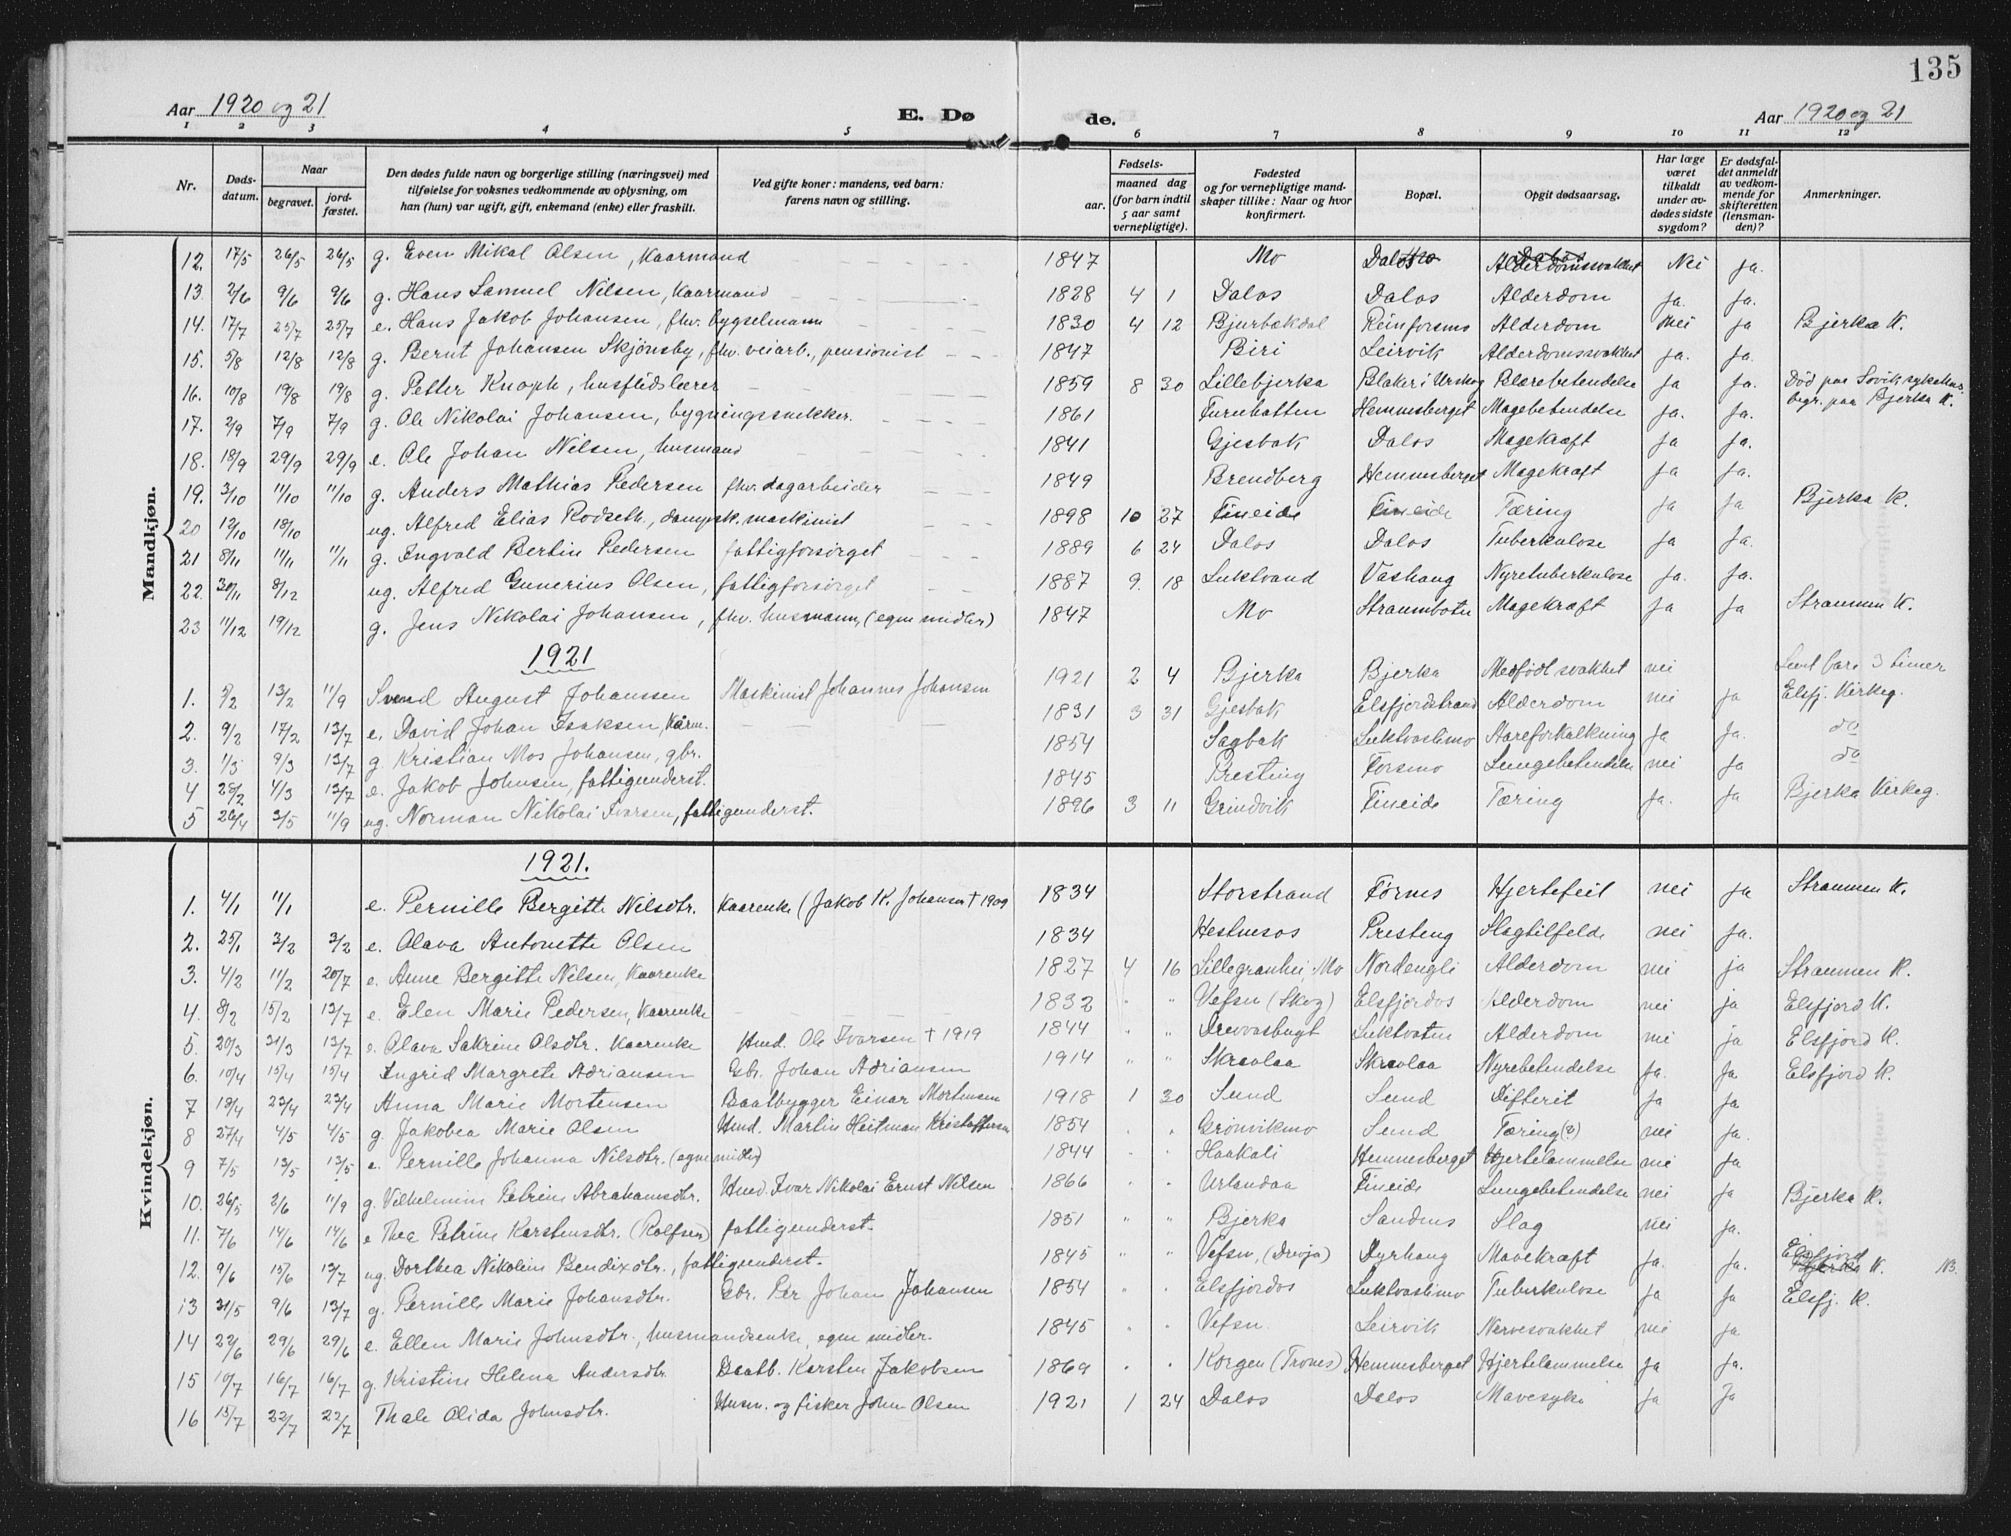 135
Aar 1920 og 21 E. Dø de. Aar 1920 og 21
1 2 3 4 5 6 7 8 9 10 11 12
Nr.
Døds-datum.
Naar
begravet.
jord-fæstet.
Den dødes fulde navn og borgerlige stilling (næringsvei) med
tilføielse for voksnes vedkommende av oplysning, om
han (hun) var ugift, gift, enkemand (enke) eller fraskilt.
Ved gifte koner: mandens, ved barn:
farens navn og stilling.
Fødsels-
aar.
maaned dag
(for barn indtil
5 aar samt
vernepligtige).
Fødested
og for vernepligtige mand-
skaper tillike: Naar og hvor
konfirmert.
Bopæl.
Opgit dødsaarsag.
Har læge
været
tilkaldt
under av-
dødes sidste
sygdom?
Er dødsfal-
det anmeldt
av vedkom-
mende for
skifteretten
(lensman-
den)?
Anmerkninger.
Mandkjøn.
12. 17/5 26/5 26/5 g. Even Mikal Olsen, Kaarmand 1847 Mo Dalos Alderdomssvakhet Nei Ja.
13. 2/6 9/6 9/6 g. Hans Samuel Nilsen, Kaarmand 1828 4 1 Dalos Dalos Alderdom Ja. Ja.
14. 17/7 25/7 25/7 e. Hans Jakob Johansen, fhv. bygselmann 1830 4 12 Bjurbækdal Reinforsmo Alderdom Nei Ja Bjerka K.
15. 5/8 12/8 12/8 g. Bernt Johansen Skjønsby, fhv. veiarb., pensionist 1847 Biri Leirvik Alderdomssvakhet Ja. Ja.
16. 10/8 19/8 19/8 g. Petter Knoph, husflidslærer 1859 8 30 Lillebjerka Blaker i Urskog Blærebetendelse Ja Ja. Død paa sykehus begr. paa Bjerka K.
17. 2/9 7/9 7/9 g. Ole Nikolai Johansen, bygningssnekker. 1861 Furuhatten Hemnesberget Magebetendelse Ja. Ja.
18. 18/9 29/9 29/9 e. Ole Johan Nilsen, husmand 1841 Gjesbak Dalos Magekræft Ja Ja.
19. 3/10 11/10 11/10 g. Anders Mathias Pedersen fhv. dagarbeider 1849 Brendberg Hemnesberget Magekræft Ja Ja.
20 12/10 18/10 ug. Alfred Elias Rodseth, dampsk. maskinist 1898 10 27 Fineide Fineide Tæring Ja Ja Bjerka K.
21 8/11 11/11 11/11 g. Ingvald Bertin Pedersen fattigforsørget 1889 6 24 Dalos Dalos Tuberkulose Ja Ja.
22. 30/11 8/12 ug. Alfred Gunerius Olsen, fattigforsørget 1887 9. 18 Luktvand Vashaug Nyretuberkulose Ja. Ja.
23 11/12 19/12 g. Jens Nikolai Johansen, fhv. husmann, (egne midler) 1847 Mo Straumbotn Magekræft Ja Ja Straumen K.
1921
1. 5/2 13/2 11/9 Svend August Johanssen Maskinist Johannes Johansen 1921 2 4 Bjerka Bjerka Medfødt svakhet nei Levet bare 3 timer
2. 9/2 17/2 13/7 e. David Johan Isaksen, Kårm. 1831 3 31 Gjesbak Elsfjordstrand Alderdom nei Ja Elsfj. Kirkeg.
3. 1/3 9/3 13/7 g Kristian Mos Johansen, gbr. 1854 Sagbak Luktvatnmo Aareforkalkning Ja Ja. do
4 25/2 4/3 13/7 e. Jakob Johnsen, fattigunderst. 1845 Presteng Forsmo Lungebetendelse nei Ja do
5 26/4 3/5 11/9 ug. Norman Nikolai Ivarsen, fattigunderst. 1896 3 11 Grindvik Fineide Tæring Ja. Ja Bjerka Kirkeg.
Kvindekjøn.
1921.
1. 4/1 11/1 e. Pernille Bergitte Nilsdtr. Kaarenke (Jakob K. Johansen † 1909 1834 Storstrand Førnes Hjertefeil nei Ja Straumen K.
2. 25/1 3/2 3/2 e. Olava Antonette Olsen 1834 Hestnesos Presteng Slagtilfelde nei Ja.
3. 4/2 11/2 20/7 e. Anne Bergitte Nilsen, Kaarenke 1827 4 16 Lillegranhei, Mo Nordengli Alderdom nei ja Straumen K.
4. 8/2 15/2 13/7 e. Elen Marie Pedersen, Kaarenke 1832 " " Vefsn (Skog) Elsfjordos Alderdom nei ja Elsfjord K.
5. 20/3 31/3 13/7 e. Olava Sakrine Olsdtr. Kaarenke Hmd. Ole Ivarsen † 1919 1844 " " Drevvasbugt Luktvatn Alderdom nei ja Elsfjord K.
6. 10/4 15/4 15/4 Ingrid Margrete Adriansen Gbr. Johan Adriansen 1914 " " Skravlaa Skravlaa Nyrebetendelse Ja. Ja Elsfjord K.
7 18/4 23/4 23/4 Anna Marie Mortensen Baatbygger Einar Mortensen 1918 1 30 Sund Sund Difterit Ja Ja
8 27/4 4/5 4/5 g. Jakobea Marie Olsen Hmd. Martin Heitman Kristoffersen 1854 " " Grønvikmo Sund Tæring (?) nei Ja.
9 7/5 13/5 13/5 e. Pernille Johanna Nilsdtr. (egne midler) 1844 " " Haakali Hemnesberget Hjertelammelse nei Ja
10. 26/5 2/6 11/9 g. Vilhelmine Petrine Abrahamsdtr. Hmd. Ivar Nikolai Ernst Nilsen 1866 " " Urlandaa Fineide Lungebetendelse nei Ja Bjerka K.
11. 7/6 14/6 14/6 e Thea Petrine Karstensdtr. (Rolfsen) fattigunderst. 1851 " " Bjerka Sandnes Slag nei Ja.
12. 9/6 15/6 13/7 ug. Dorthea Nikoline Bendixdtr., fattigunderst. 1845 " " Vefsn, (Drevja) Dyrhaug Mavekræft Ja. Ja. Elsfjord Bjerka K. NB.
13 31/5 9/6 13/7 g. Pernille Marie Johansdtr. Gbr. Per Johan Johansen 1854 " " Elsfjordos Luktvatnmo Tuberkulose Ja Ja Elsfj. K.
14 22/6 29/6 29/6 e. Ellen Marie Johnsdtr., husmandsenke, egne midler. 1845 " " Vefsn. Leirvik Nervesvakhet nei Ja
15 10/7 16/7 16/7 g. Kristine Helena Andersdtr. Baatb. Karsten Jakobsen 1869 " " Korgen (Troms) Hemnesberget Hjertelammelse Ja Ja.
16 15/7 22/7 22/7 Thale Olida Johnsdtr. Husm. og fisker John Olsen 1921 1 24 Dalos Dalos Mavesyke Ja Ja